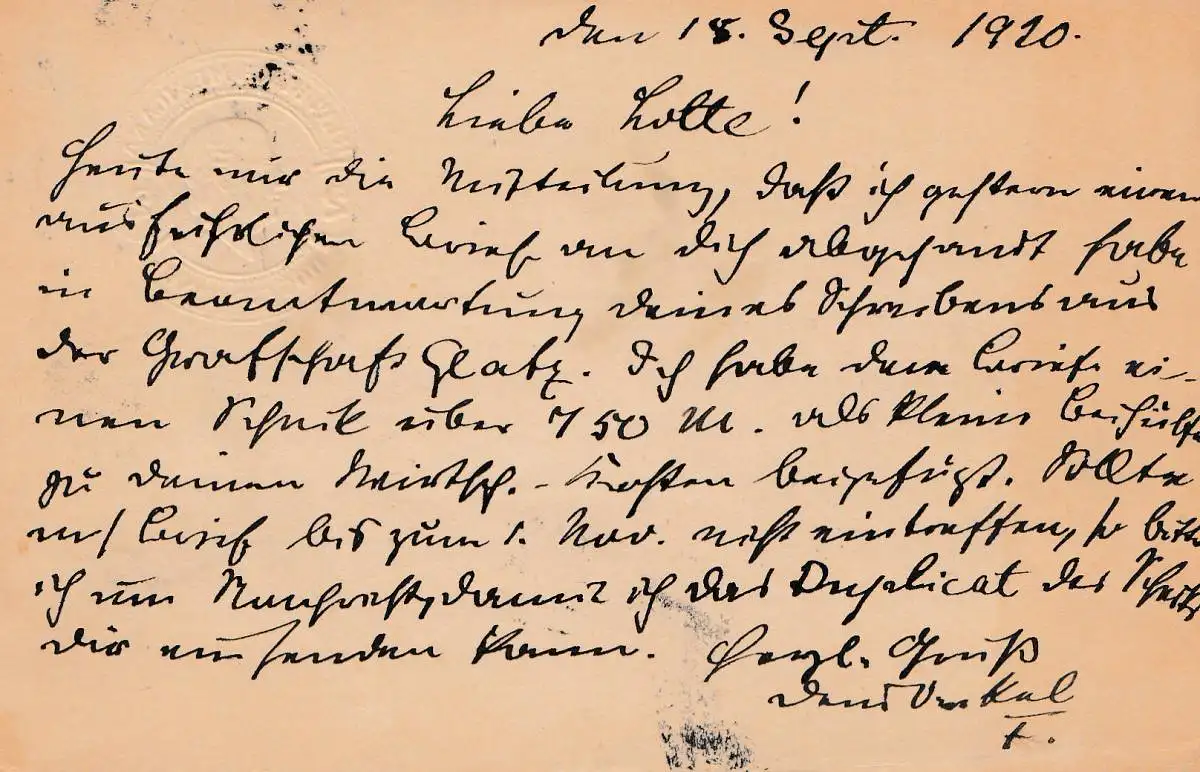 den 18. Sept. 1920.
Liebe Lotte!
Heute nur die Mitteilung, daß ich gestern einen
ausführlichen Brief an dich abgesandt habe
in Beantwortung deines Schreibens aus
der Grafschaft Glatz. Ich habe dem Briefe ei-
nen Scheck über 750 M. als kleine Beihülfe
zu deinen Wirtsch.-Kosten beigefügt. Sollte
m/ Brief bis zum 1. Nov. nicht eintreffen, so bitte
ich um Nachricht, damit ich das Duplicat des Schecks
dir einsenden kann. Herzl. Gruß
dein Onkel
F.